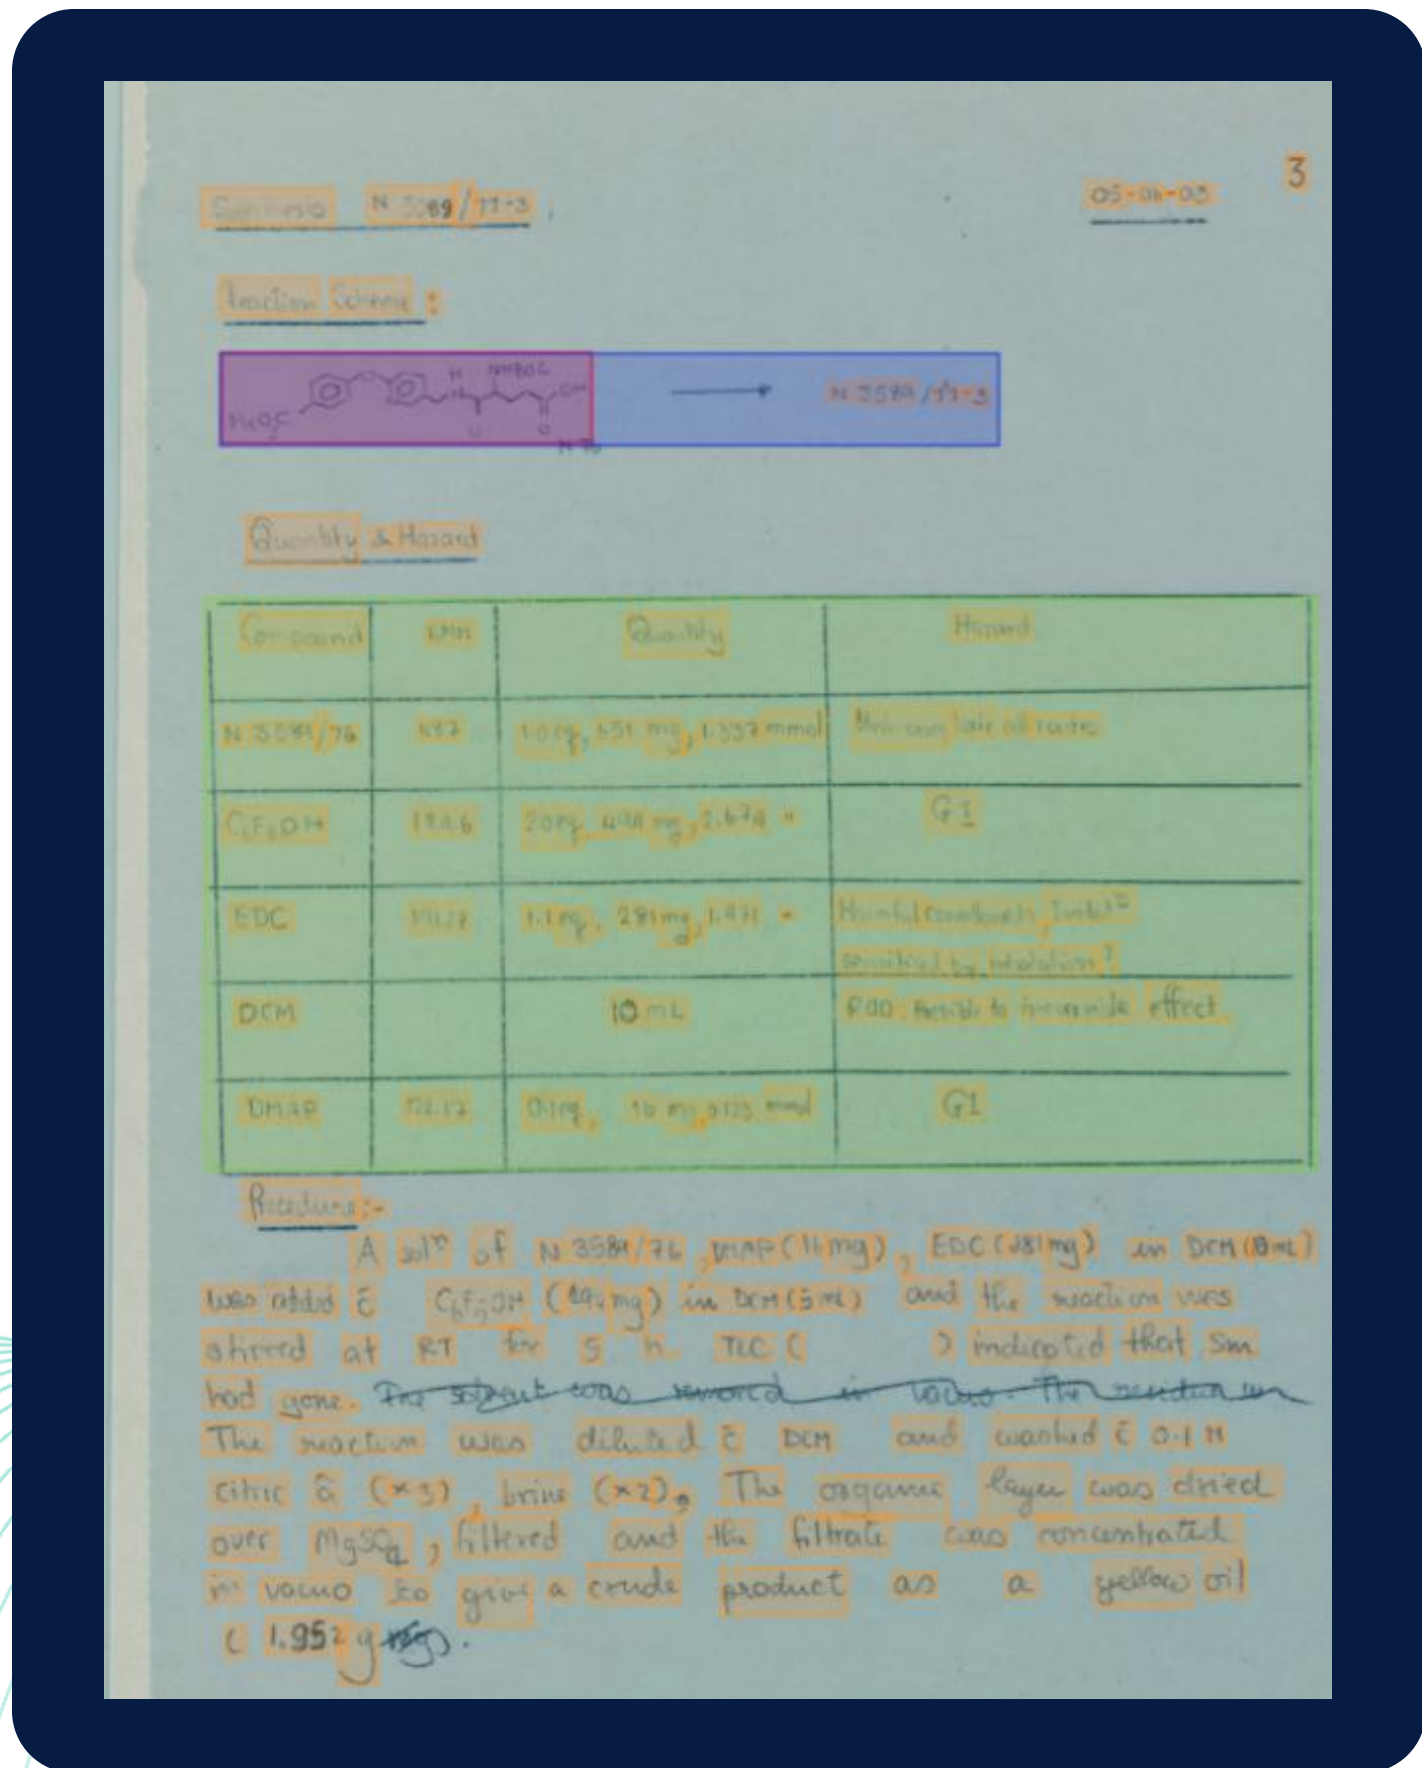 3
Synthesis N 3589/77-3
05-06-03
Reaction Scheme :
MeO₂C O H N NHBOC OH
O O
N 76
N 3589/77-3
Quantity & Hazard
Compound RMM Quantity Hazard
N 3589/76 487 1.0 eq, 651 mg, 1.337 mmol
C₆F₅OH 184.6 2.0 eq, mg, 2.674 " G1
EDC 191.7 1.1 eq, 281 mg, 1.471 " Harmful
by inhalation
DCM 10 mL Possible effect
DMAP 122.17 0.1 eq, 16 mg, 0.133 mmol G1
Procedure :-
A solⁿ of N 3589/76 , DMAP (16 mg) , EDC (281 mg) in DCM ( mL)
was added c̄ C₆F₅OH ( mg) in DCM (5 mL) and the reaction was
stirred at RT for 5 h. TLC ( ) indicated that Sm
had gone. The solvent was removed in vacuo. The residue
The reaction was diluted c̄ DCM and washed c̄ 0.1 M
citric a (x3) , brine (x2), The organic layer was dried
over MgSO₄ , filtered and the filtrate was concentrated
in vacuo to give a crude product as a yellow oil
( 1.952 g ).